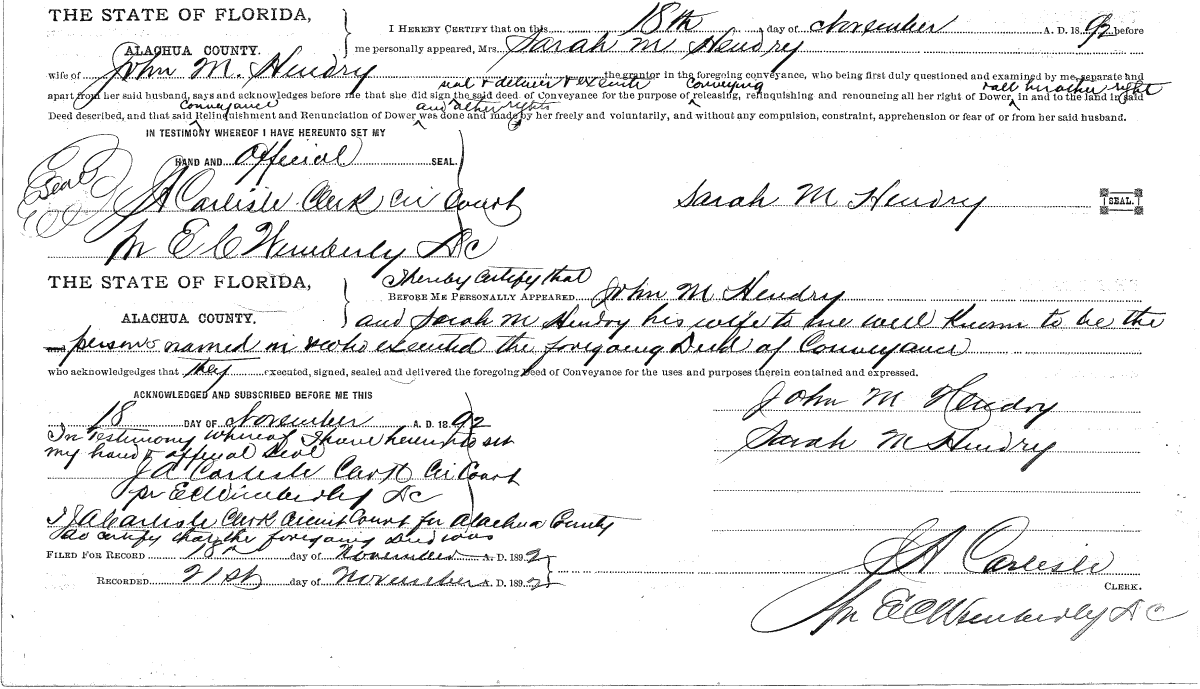 THE STATE OF FLORIDA,
ALACHUA COUNTY.
I HEREBY CERTIFY that on this 18th day of November A. D. 1892 before
me personally appeared, Mrs. Sarah M Hendry
wife of John M. Hendry the grantor in the foregoing conveyance, who being first duly questioned and examined by me, separate and
seal & deliver & execute Conveying & all her other right
apart from her said husband, says and acknowledges before me that she did sign the said deed of Conveyance for the purpose of releasing, relinquishing and renouncing all her right of Dower in and to the land in said
Conveyance and other rights
Deed described, and that said Relinquishment and Renunciation of Dower was done and made by her freely and voluntarily, and without any compulsion, constraint, apprehension or fear of or from her said husband.
IN TESTIMONY WHEREOF I HAVE HEREUNTO SET MY
HAND AND Official SEAL.
Seal
J A Carlisle Clerk Cir Court
Sarah M Hendry SEAL.
pr E C Wimberly DC
THE STATE OF FLORIDA,
ALACHUA COUNTY.
I hereby certify that
BEFORE ME PERSONALLY APPEARED John M Hendry
and Sarah M Hendry his wife to me well known to be the
persons named in & who executed the foregoing Deed of Conveyance
who acknowledges that they executed, signed, sealed and delivered the foregoing Deed of Conveyance for the uses and purposes therein contained and expressed.
ACKNOWLEDGED AND SUBSCRIBED BEFORE ME THIS
18 DAY OF November A. D. 1892
John M Hendry
In Testimony whereof I have hereunto set
my hand & official Seal
Sarah M Hendry
J A Carlisle Clerk Cir Court
pr E C Wimberly DC
I J A Carlisle Clerk Circuit Court for Alachua County
do certify that the foregoing Deed was
FILED FOR RECORD 18th day of November A. D. 1892
RECORDED 21st day of November A. D. 1892
J A Carlisle
CLERK.
pr E C Wimberly DC